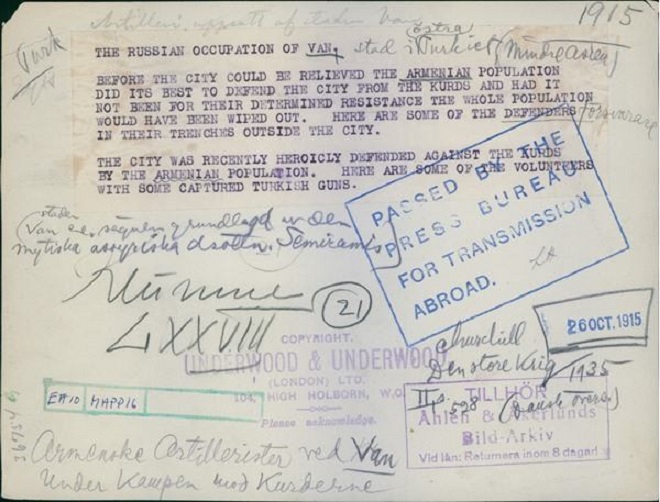 Artilleri, uppsatt af staden Van
1915
Turk
THE RUSSIAN OCCUPATION OF VAN, stad i östra Turkiet (Mindre Asien)
BEFORE THE CITY COULD BE RELIEVED THE ARMENIAN POPULATION
DID ITS BEST TO DEFEND THE CITY FROM THE KURDS AND HAD IT
NOT BEEN FOR THEIR DETERMINED RESISTANCE THE WHOLE POPULATION
WOULD HAVE BEEN WIPED OUT. HERE ARE SOME OF THE DEFENDERS försvarare
IN THEIR TRENCHES OUTSIDE THE CITY.
THE CITY WAS RECENTLY HEROICLY DEFENDED AGAINST THE KURDS
BY THE ARMENIAN POPULATION. HERE ARE SOME OF THE VOLUNTEERS
WITH SOME CAPTURED TURKISH GUNS.
PASSED BY THE
PRESS BUREAU
FOR TRANSMISSION
ABROAD.
staden
Van är sägnen grundlagd av den
mytiska assyriska drottn. Semiramis
21
LXXVIII
26 OCT. 1915
COPYRIGHT.
UNDERWOOD & UNDERWOOD
(LONDON) LTD.
104, HIGH HOLBORN, W.C.
Please acknowledge.
Churchill
Den store Krig 1935
II s. 528 (Dansk övers.)
TILLHÖR
Åhlén & Åkerlunds
Bild-Arkiv
Vid lån: Returnera inom 8 dagar!
EA10 MAPP16
Armenske Artillerister ved Van
under Kampen mod Kurderne